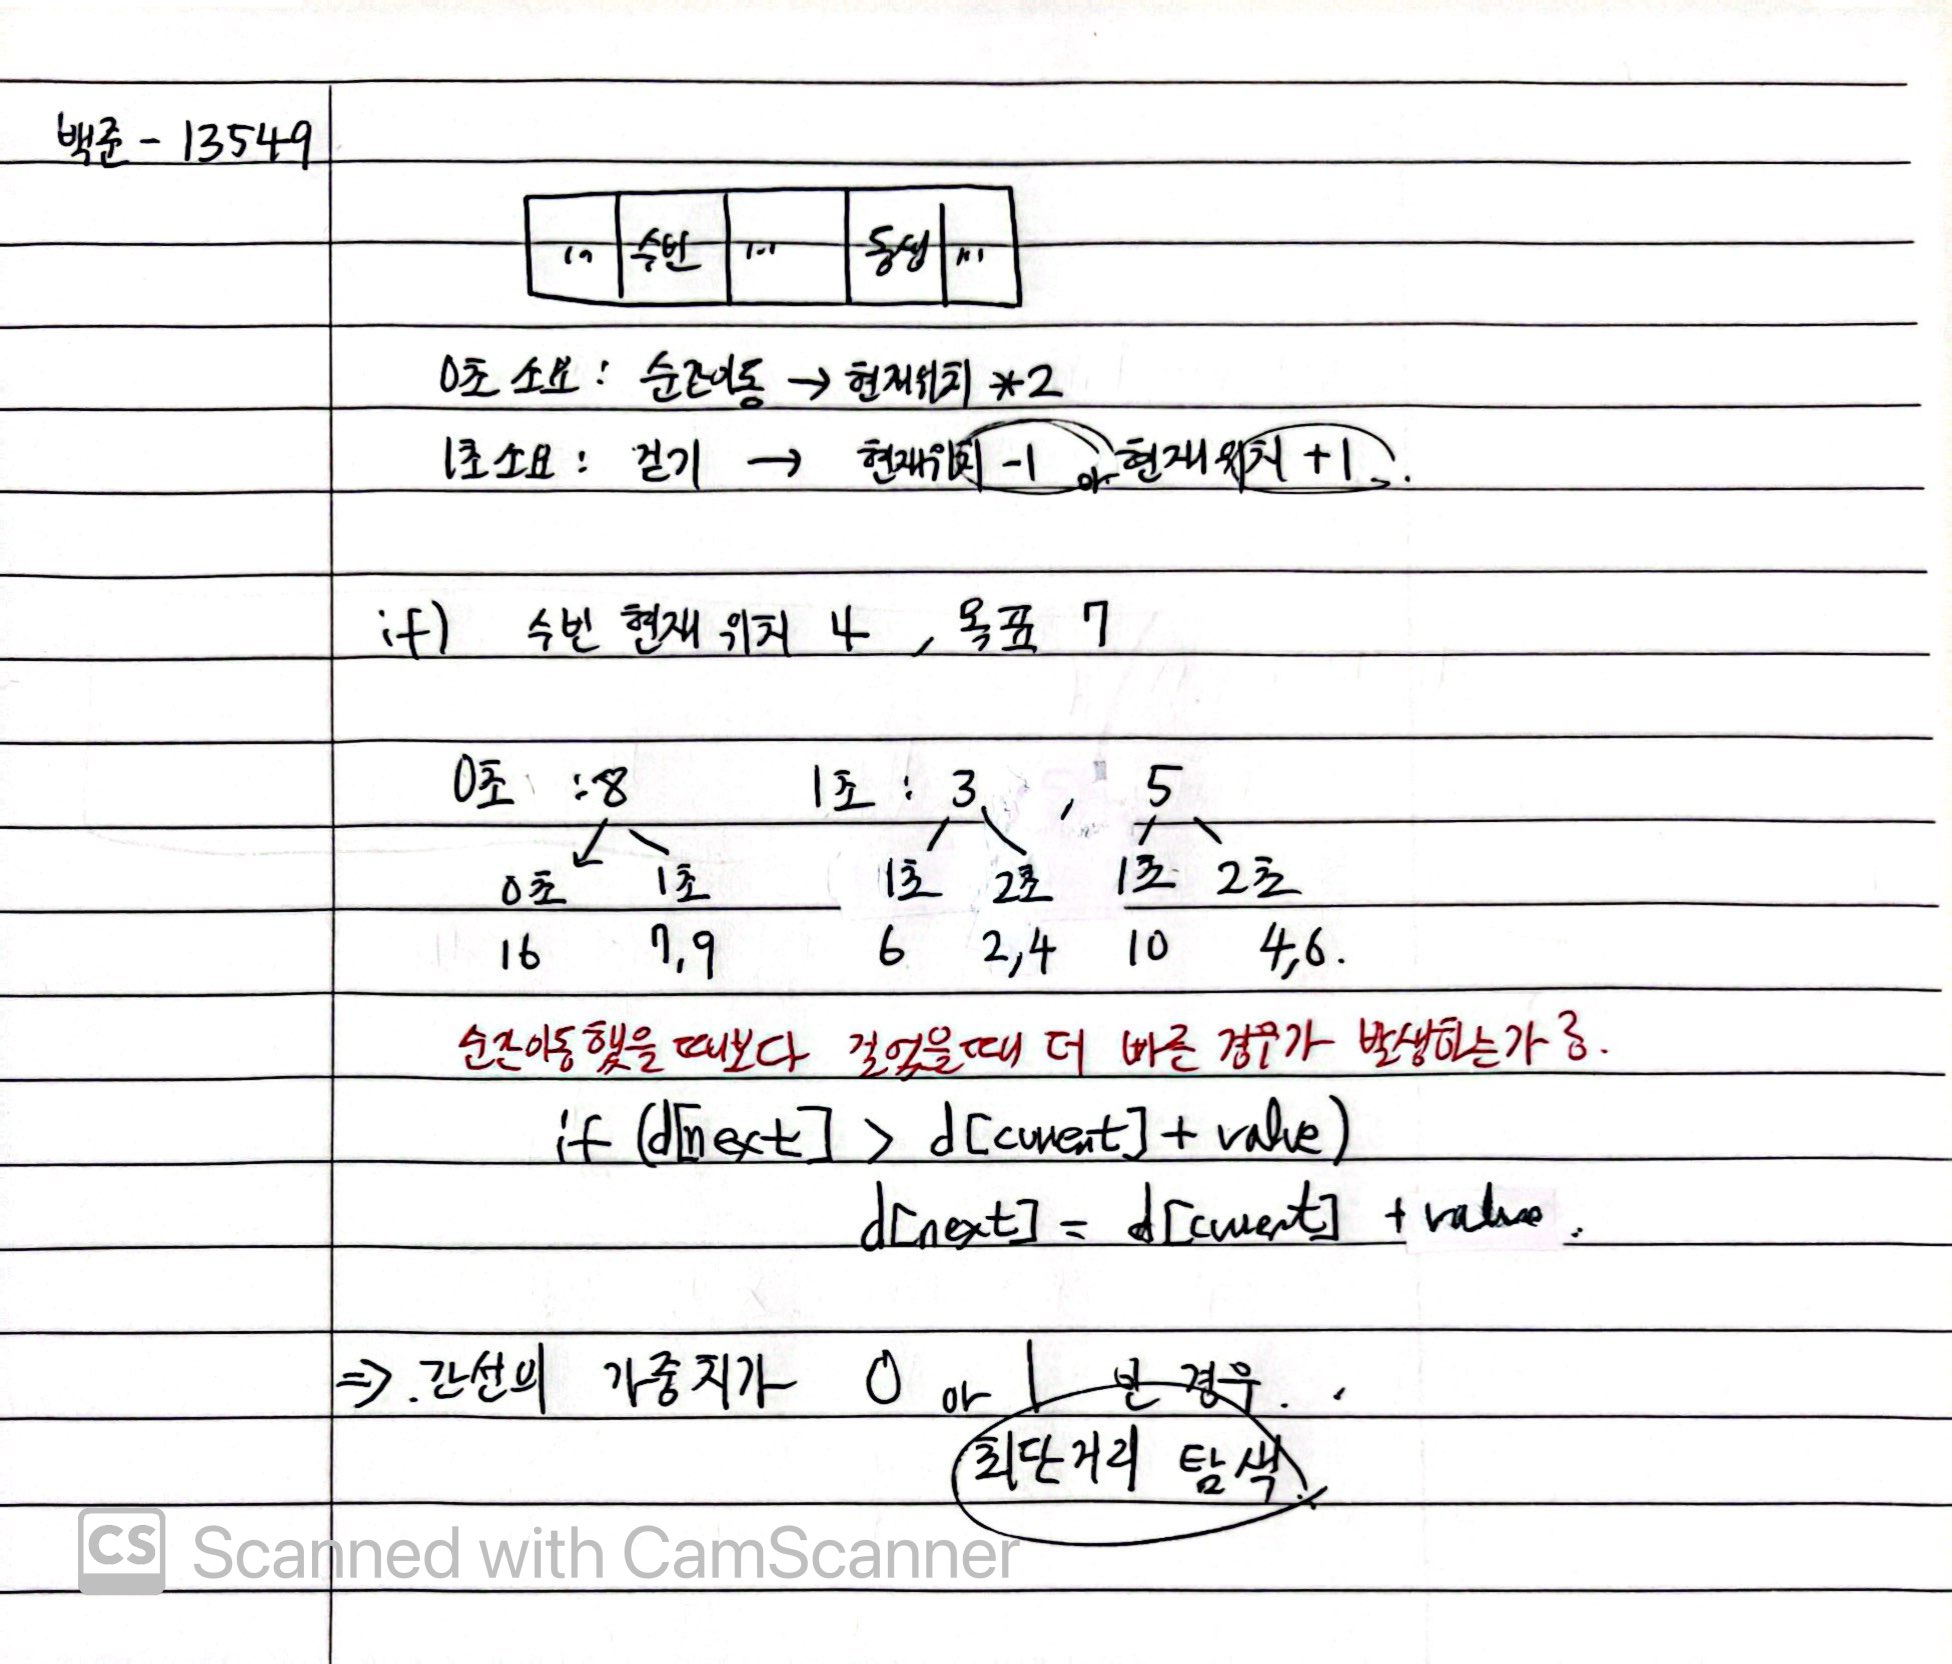 백준 - 13549
... 수빈 ... 동생 ...
0초 소요 : 순간이동 → 현재위치 *2
1초 소요 : 걷기 → 현재위치 -1 or 현재위치 +1 .
if) 수빈 현재 위치 4 , 목표 7
0초 : 8 1초 : 3 , 5
0초 1초 1초 2초 1초 2초
16 7,9 6 2,4 10 4,6.
순간이동했을때보다 걸었을때 더 빠른 경우가 발생하는가?.
if (d[next] > d[current] + value)
d[next] = d[current] + value .
=> . 간선의 가중치가 0 or 1 인 경우 . .
최단거리 탐색.
CS Scanned with CamScanner